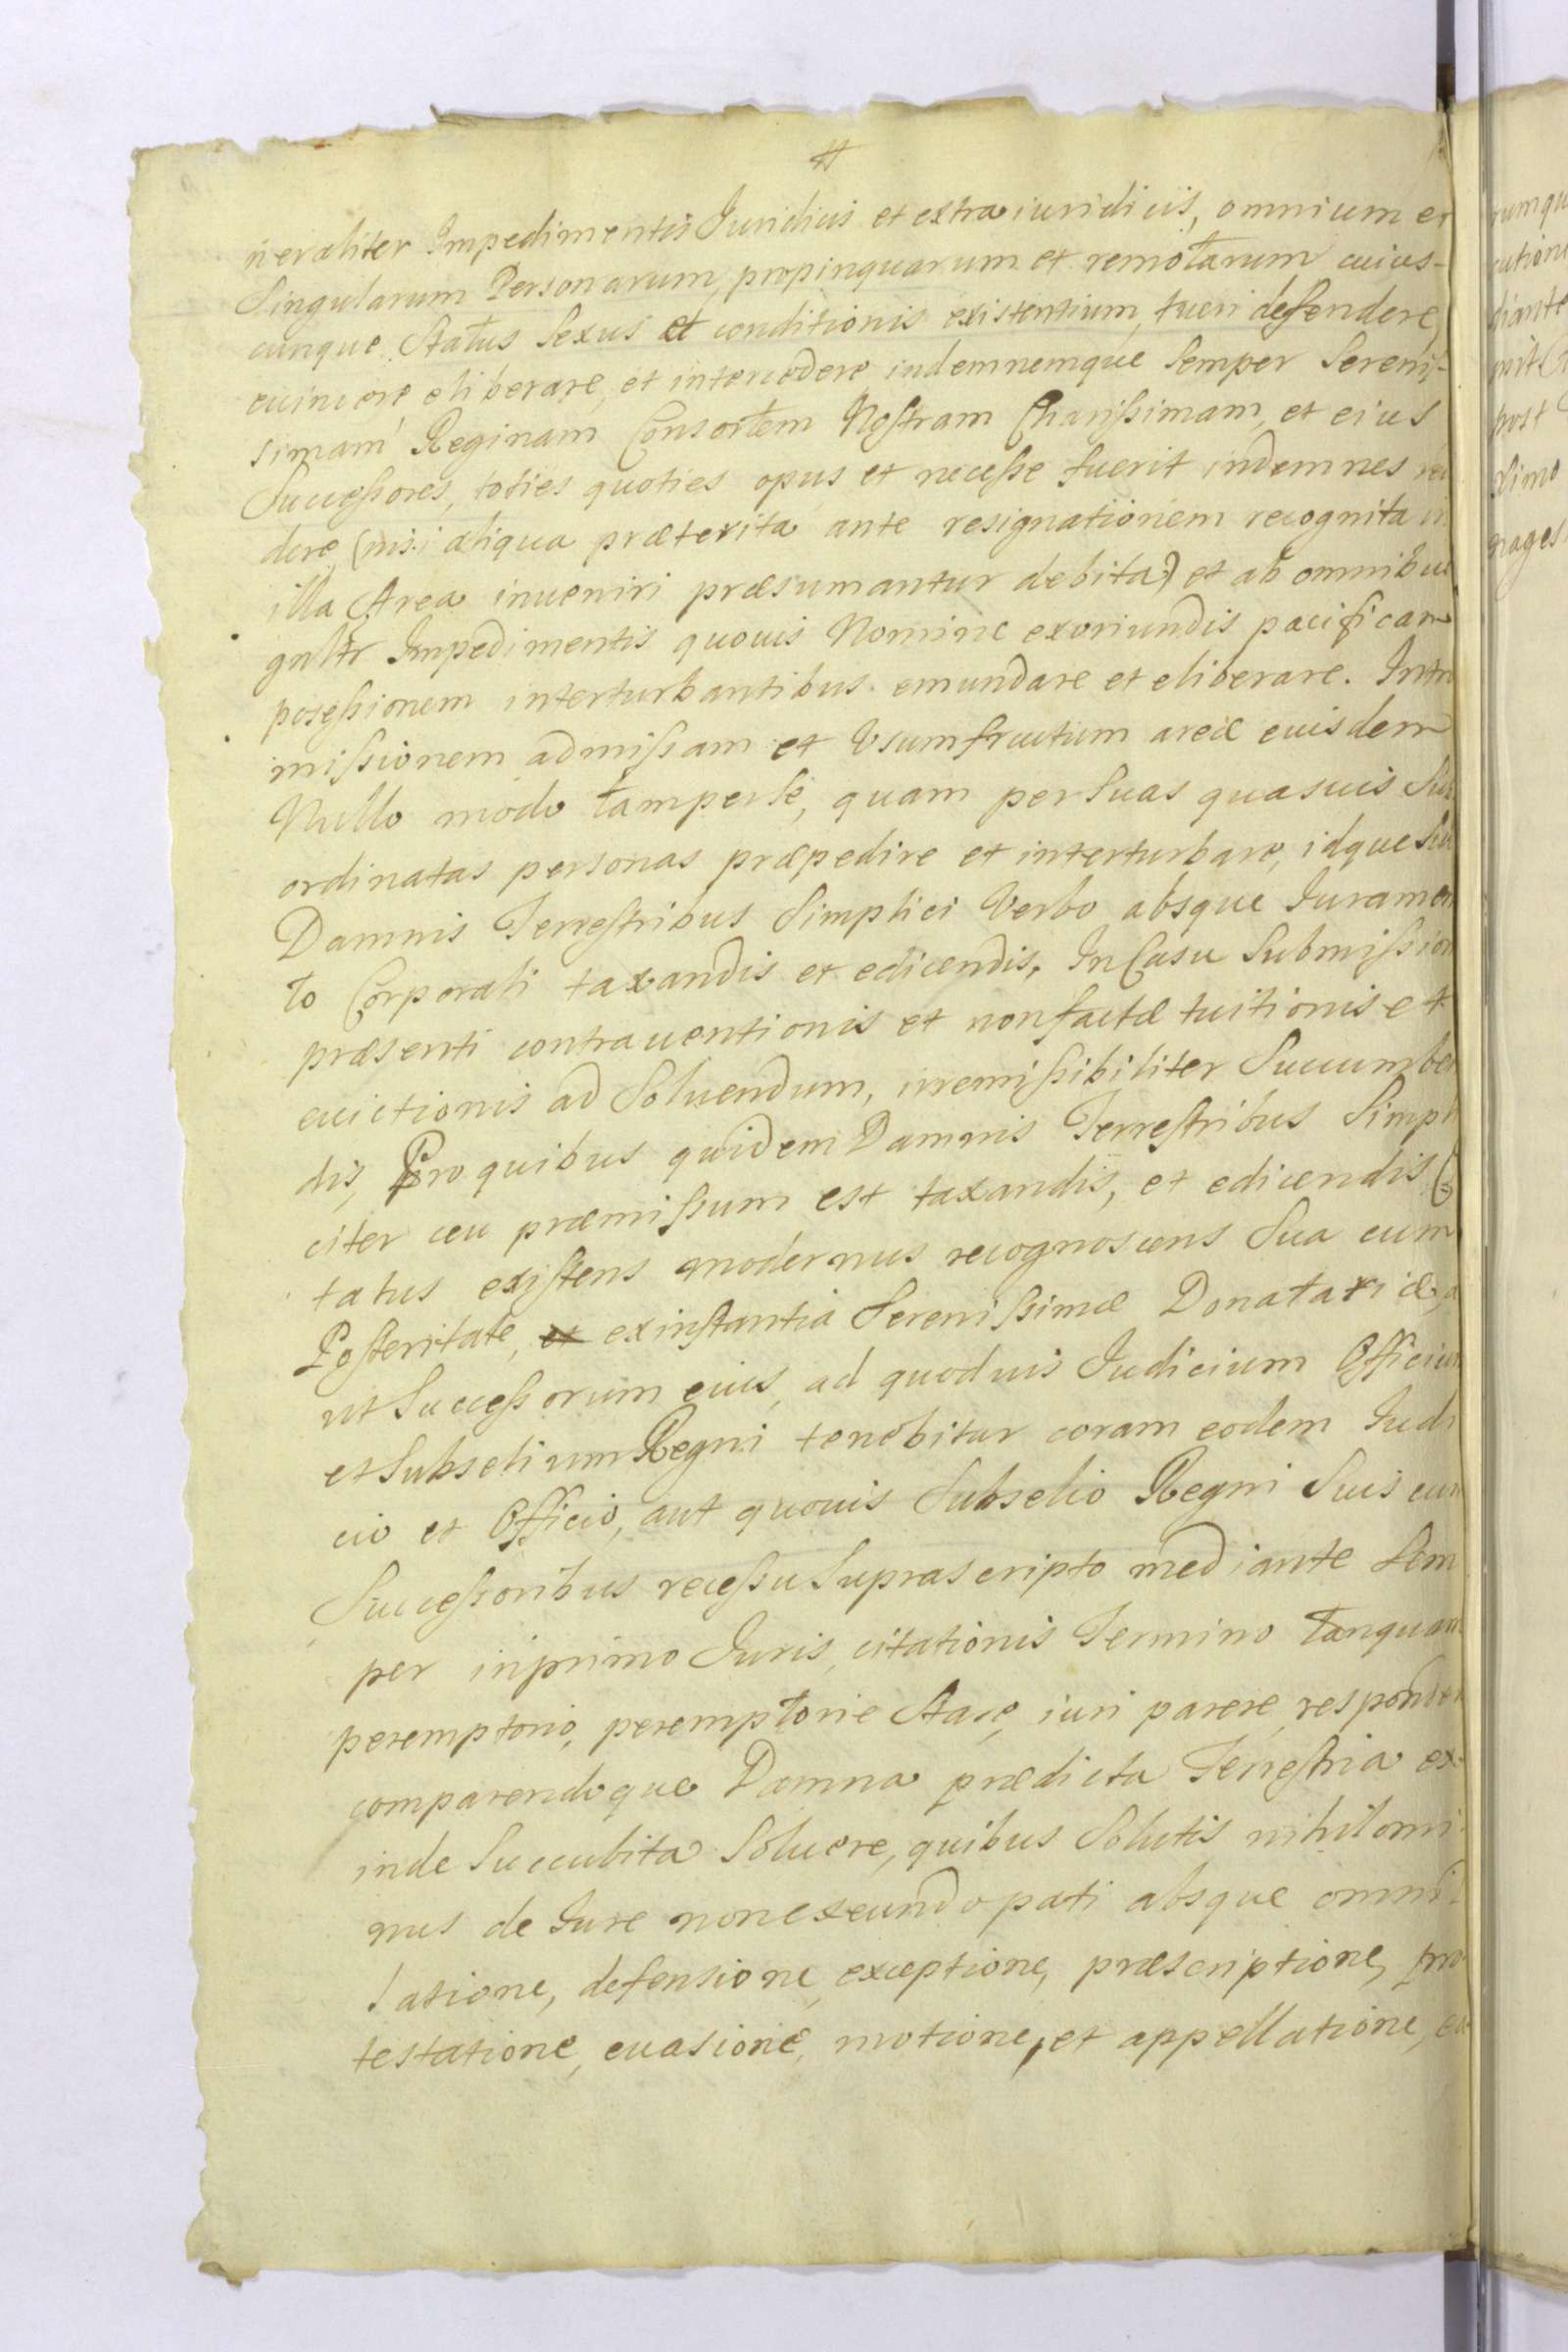 #
neraliter Impedimentis Iuridicis et extraiuridicis, omnium et
Singularum Personarum, propinquarum et remotarum cuius-
cunque Status Sexus et conditionis existentium, tueri defendere,
euincere eliberare, et intercedere, indemnemque Semper Serenis-
simam Reginam Consortem Nostram Charissimam, et eius
Successores, toties quoties opus et necesse fuerit indemnes red
dere, (nisi aliqua præterita ante resignationem recognita in
illa Area inueniri præsumantur debita) et ab omnibus
gnltr Impedimentis quouis Nomine exoriundis pacificam
posessionem interturbantibus emundare et eliberare. Intro
missionem admissam et Vsumfructum areæ euisdem
Nullo modo tamperse, quam per Suas quasuis Sub
ordinatas personas præpedire et interturbare, idque Sub
Damnis Terrestribus Simplici Verbo absque Iuramen
to Corporali taxandis et edicendis, In Casu Submission
præsenti contrauentionis et nonfactæ tuitionis et
euictionis ad Soluendum, irremissibiliter Succumben
dis, Pro quibus quidem Damnis Terrestribus Simpli
citer ceu præmissum est taxandis, et edicendis Ci
tatus existens modernus recognoscens Sua cum
Posteritate, ex instantia Serenissimæ Donatariæ, a
ut Successorum eius, ad quoduis Iudicium Officium
et Subselium Regni tenebitur coram eodem Iudi
cio et Officio, aut quouis Subselio Regni Suis cum
Successoribus recessu Suprascripto mediante Sem
per inprimo Iuris, citationis Termino tanquam
peremptorio, peremptorie Stare, iuri parere, responder
comparendoque Damna prædicta Terrestria ex-
inde Succubita Soluere, quibus Solutis nihilomi
nus de Iure nonexeundo pati absque omni
latione, defensione, exceptione, præscriptione, pro
testatione, euasione, motione, et appellatione,